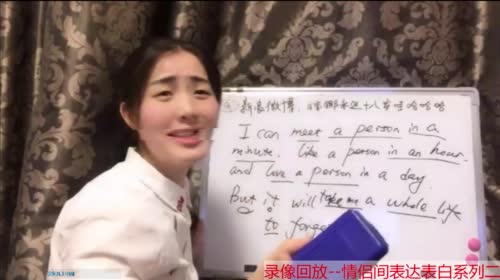 新浪微博，
永远十八岁哈哈哈
I can meet a person in a
minute, like a person in an hour.
and love a person in a day.
But it will take me a whole life
to forge
录像回放--情侣间表达表白系列二